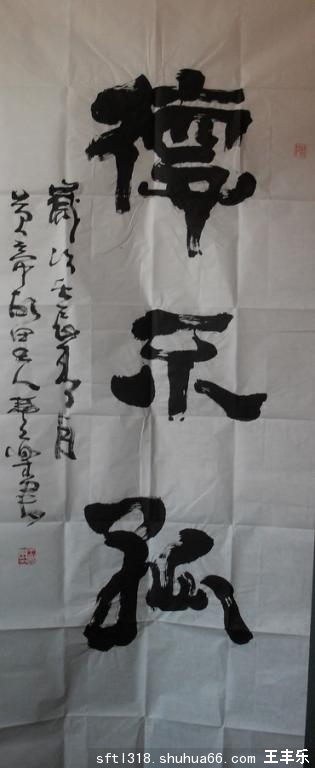 德不孤
岁次壬辰年夏月
黄帝故里人
sftl318.shuhua66.com 王丰乐